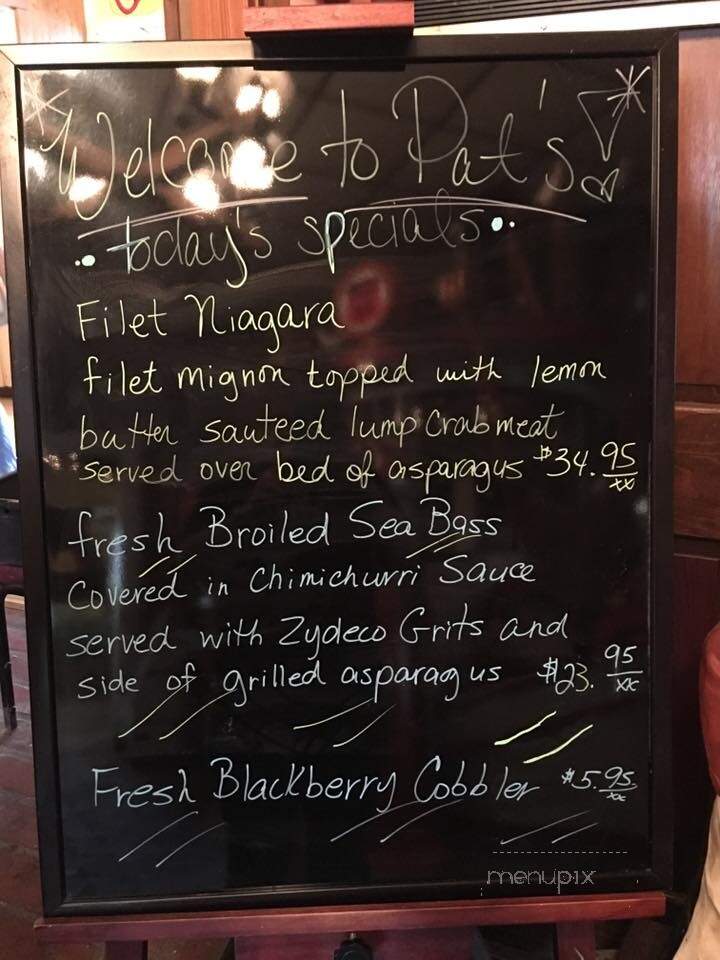 Welcome to Pat's!
today's specials
Filet Niagara
filet mignon topped with lemon
butter sauteed lump Crabmeat
served over bed of asparagus $34.95/xx
fresh Broiled Sea Bass
Covered in Chimichurri Sauce
served with Zydeco Grits and
side of grilled asparagus $23.95/xx
Fresh Blackberry Cobbler $5.95/xx
menupix